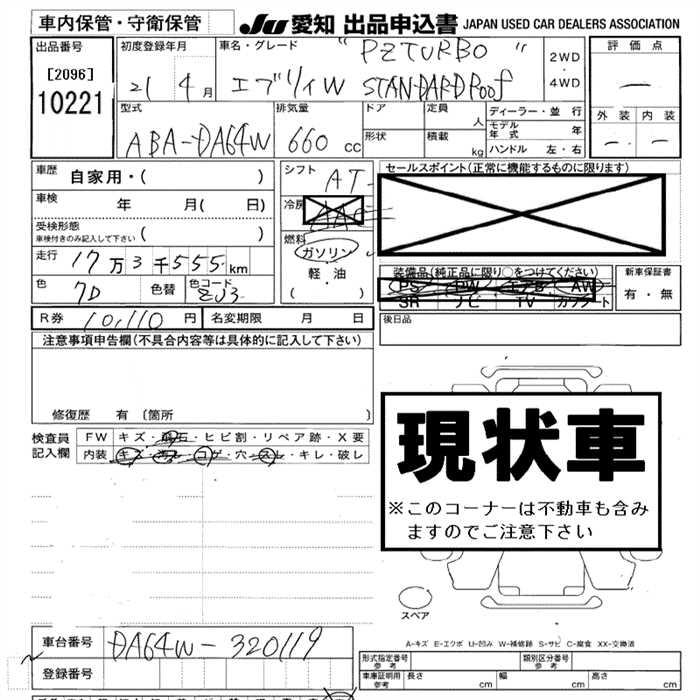 車内保管・守衛保管 JU 愛知 出品申込書 JAPAN USED CAR DEALERS ASSOCIATION
出品番号 初度登録年月 車名・グレード "PZTURBO" 2WD・4WD 評価点
[2096] 21 4月 エブリィW STANDARDRoof —
10221 外装 内装
型式 排気量 ドア 定員 人 ディーラー・並行
ABA-DA64W 660 cc 形状 積載 kg モデル年式 年
ハンドル 左・右
車歴 自家用・( ) シフト AT セールスポイント(正常に機能するものに限ります)
車検 年 月( 日) 冷房 AAC
受検形態 車検付きのみ記入して下さい ( ) 燃料 ガソリン
走行 17万3千555km 軽油 装備品(純正品に限り○をつけてください) 新車保証書
色 7D 色替 色コード ZJ3 ( ) PS・PW・エアB・AW 有・無
SR ナビ TV カワシート
R券 10,110円 名変期限 月 日 後日品
注意事項申告欄(不具合内容等は具体的に記入して下さい)
修復歴 有 〔箇所 〕
検査員記入欄 FW キズ・飛石・ヒビ割・リペア跡・X要
内装 キズ・ヨゴレ・コゲ・穴・スレ・キレ・破レ
現状車
※このコーナーは不動車も含み
ますのでご注意下さい
スペア
A-キズ E-エクボ U-凹み W-補修跡 S-サビ C-腐食 XX-交換済
車台番号 DA64W-320119 形式指定番号 参考 類別区分番号 参考
登録番号 車庫証明用 参考 長さ cm 幅 cm 高さ cm